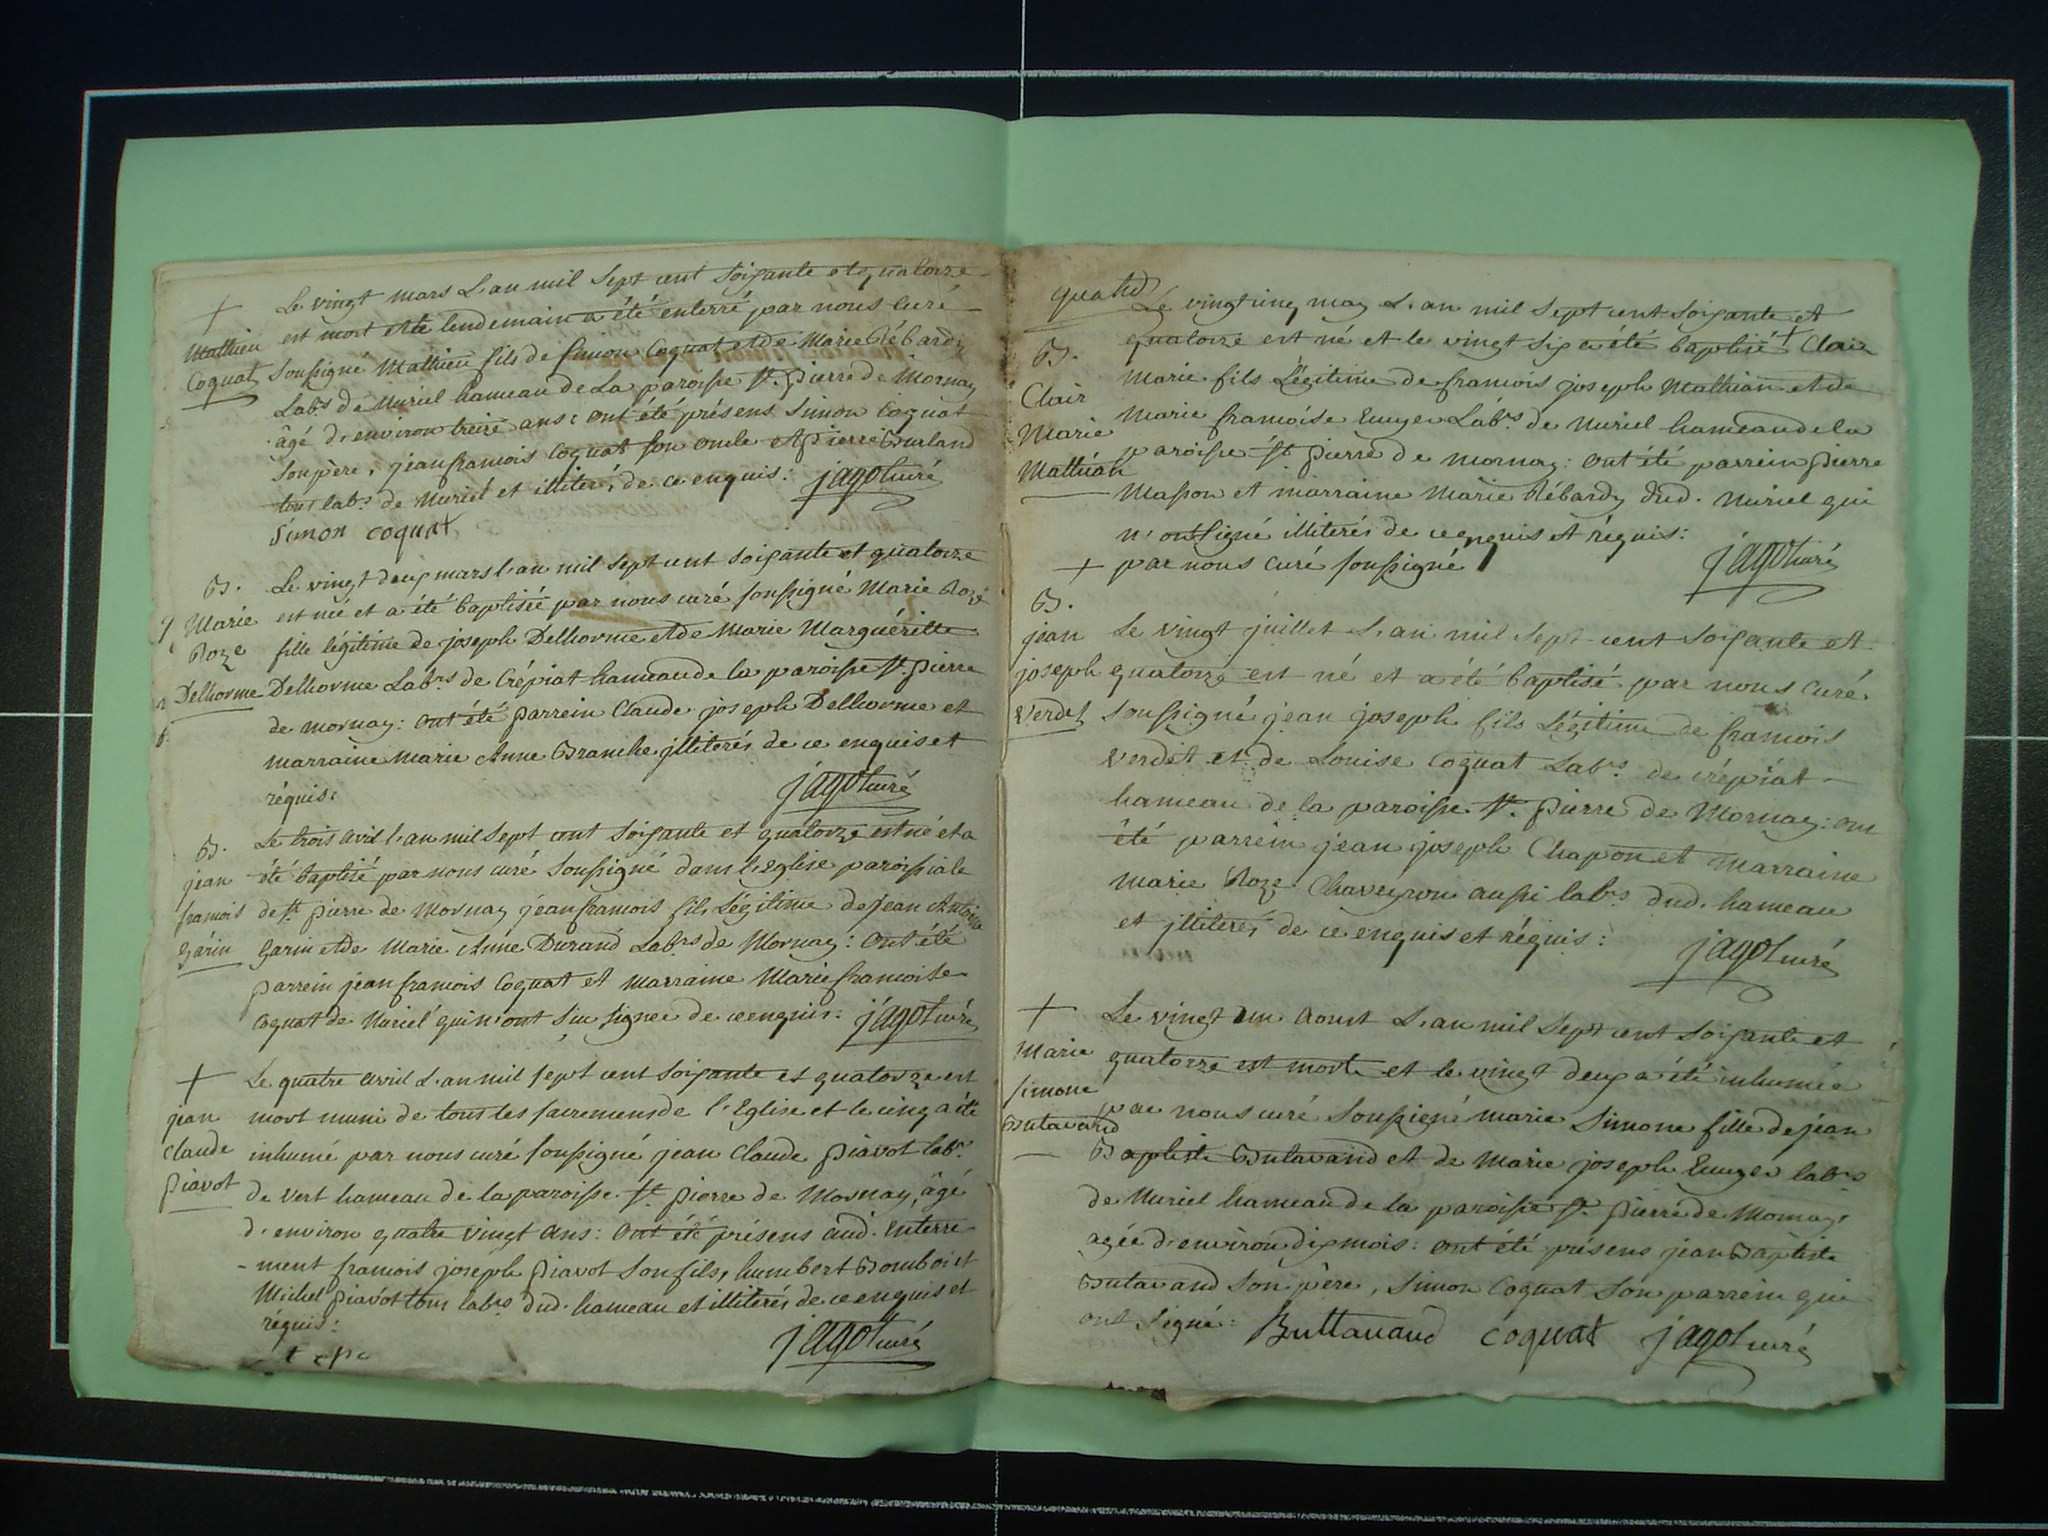 +
Mathieu
Coquat
Le vingt mars L'an mil Sept cent Soixante et quatorze
est mort et le lendemain a été enterré par nous curé
Soussigné Mathieu fils de Simon Coquat et de Marie Rébardy
Labrs de Nuriel hameau de La paroisse St. pierre de Mornay
âgé d'environ treize ans: ont été présens Simon Coquat
Son père, jean francois Coquat son oncle et pierre Burland
tous labrs de Nuriel et illiterés de ce enquis: jagot curé
Simon coquat
B.
Marie
Roze
Delhorme
Le vingt deux mars l'an mil Sept cent Soixante et quatorze
est née et a été baptisée par nous curé soussigné Marie Roze
fille légitime de joseph Delhorme et de Marie Marguéritte
Delhorme Labrs de Crépiat hameau de la paroisse St. pierre
de mornay: ont été parrein Claude joseph Delhorme et
marraine Marie Anne Branche jlliterés de ce enquis et
réquis: jagot curé
B.
jean
francois
Garin
Le trois avril l'an mil Sept cent Soixante et quatorze est né et a
été baptisé par nous curé Soussigné dans l'Eglise paroissiale
de St. pierre de Mornay jean francois fils Légitime de jean Antoine
Garin et de Marie Anne Durand Labrs de Mornay: ont été
parrein jean francois Coquat et marraine Marie francoise
Coquat de Nuriel qui n'ont Sçu signer de ce enquis: jagot curé
+
jean
claude
piavot
Le quatre avril L'an mil sept cent Soixante et quatorze est
mort muni de tous les sacremens de l'Eglise et le cinq a été
inhumé par nous curé soussigné jean Claude piavot labr.
de Vert hameau de la paroisse St. pierre de Mornay, âgé
d'environ quatre vingt ans: ont été présens aud. enterre-
-ment francois joseph piavot son fils, humbert Bomboi et
Michel piavot tous labrs dud. hameau et illiterés de ce enquis et
réquis: jagot curé
B.
Clair
Marie
Mathian
Le vingt cinq may L'an mil Sept cent Soixante et
quatorze est né et le vingt six a été baptisé + Clair
Marie fils Légitime de francois joseph Mathian et de
Marie francoise Emyer Labrs. de Nuriel hameau de la
paroisse St. pierre de mornay: ont été parrein pierre
Masson et marraine Marie Rébardy dud. Nuriel qui
n'ont signé illiterés de ce enquis et réquis:
+ par nous curé soussigné jagot curé
B.
jean
joseph
Verdet
Le vingt juillet L'an mil Sept cent Soixante et
quatorze est né et a été baptisé par nous curé
Soussigné jean joseph fils Légitime de francois
Verdet et de Louise Coquat Labrs. de crépiat
hameau de la paroisse St. pierre de Mornay: ont
été parrein jean joseph Chapon et Marraine
Marie Roze Chaveyron aussi labrs dud. hameau
et jlliterés de ce enquis et réquis: jagot curé
+
Marie
Simone
Butavand
Le vingt un Aoust L'an mil Sept cent Soixante et
quatorze est morte et le vingt deux a été inhumée
par nous curé Soussigné marie Simone fille de jean
Baptiste Butavand et de Marie joseph Emyer labrs
de Nuriel hameau de la paroisse St. pierre de Mornay
agée d'environ dix mois: ont été présens jean Baptiste
Butavand Son père, Simon Coquat Son parrein qui
ont Signé: Buttavand coquat jagot curé